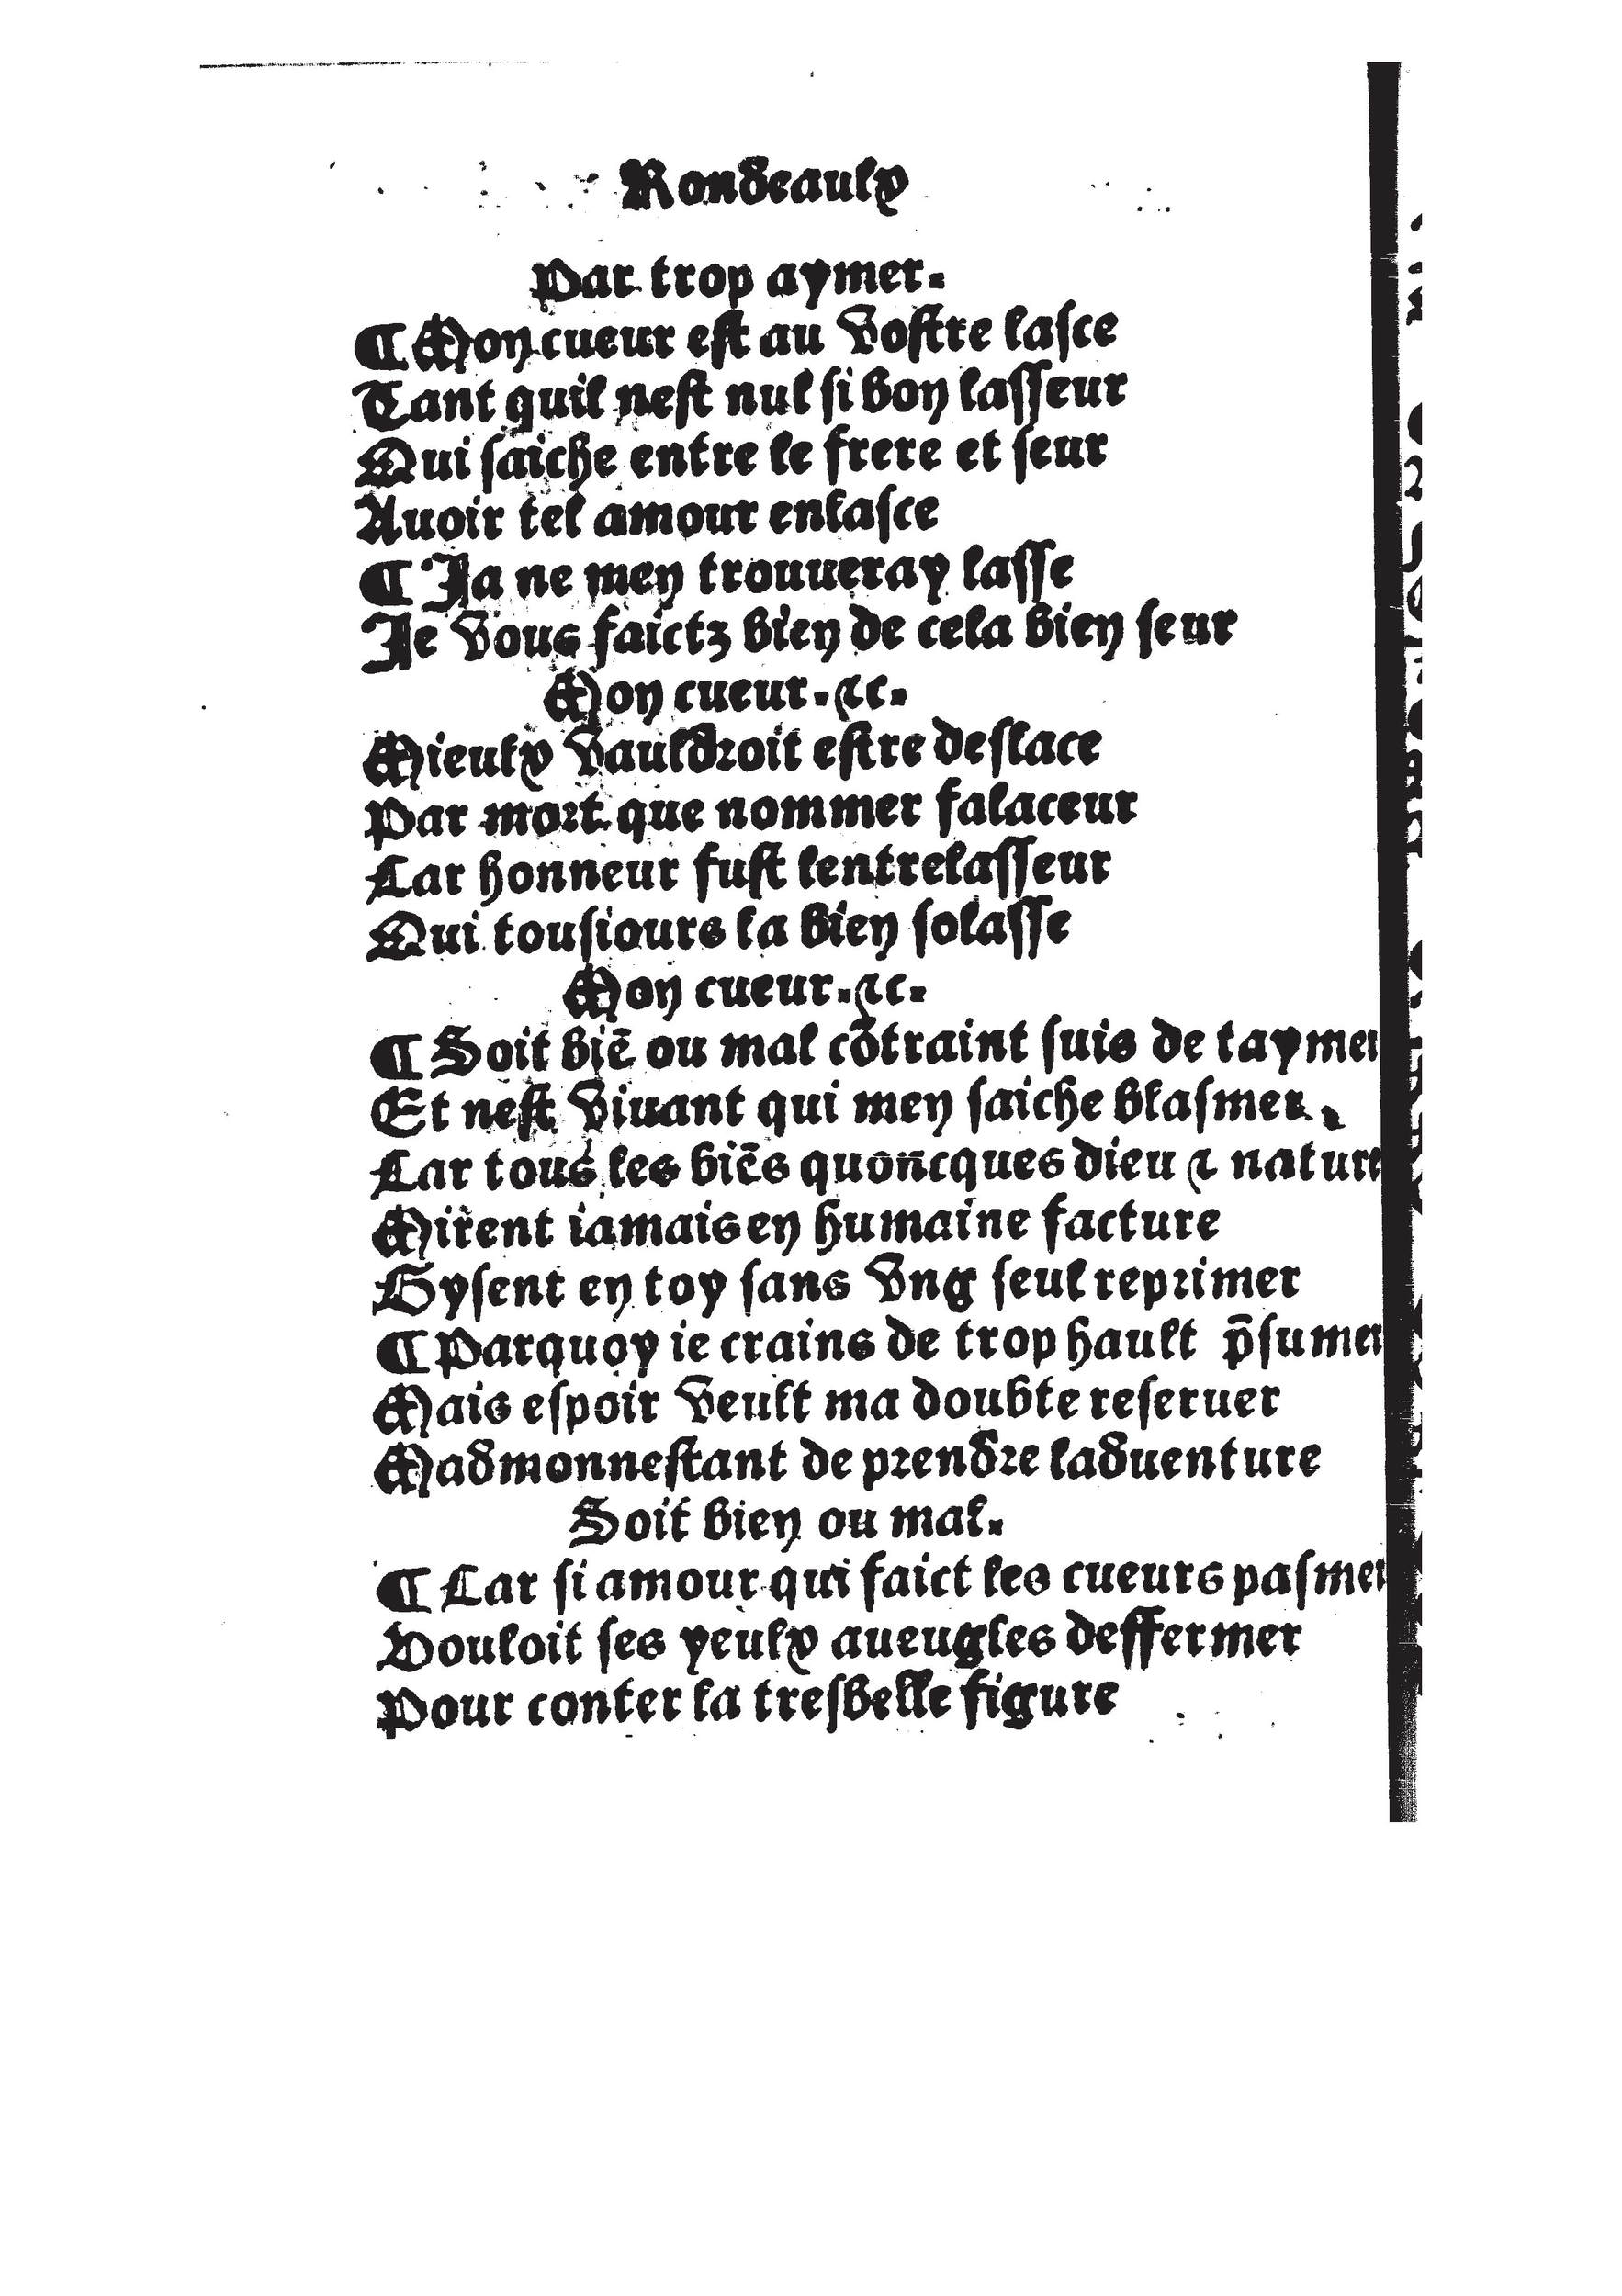 Rondeaulx
Par trop aymer.
¶ Mon cueur est au vostre lasce
Tant quil nest nul si bon lasseur
Qui saiche entre le frere et seur
Auoir tel amour enlasce
¶ Ja ne men trouueray lasse
Je vous faictz bien de cela bien seur
Mon cueur. ⁊c.
Mieulx vauldroit estre deslace
Par mort que nommer falaceur
Car honneur fust lentrelasseur
Qui tousiours la bien solasse
Mon cueur. ⁊c.
¶ Soit biē ou mal cōtraint suis de taymer
Et nest viuant qui men saiche blasmer
Car tous les biēs quon̄cques dieu ⁊ nature
Mirent iamais en humaine facture
Gysent en toy sans vng seul reprimer
¶ Parquoy ie crains de trop hault p̄sumer
Mais espoir veult ma doubte reseruer
Madmonnestant de prendre laduenture
Soit bien ou mal.
¶ Car si amour qui faict les cueurs pasmer
Vouloit ses yeulx aueugles deffermer
Pour conter la tresbelle figure